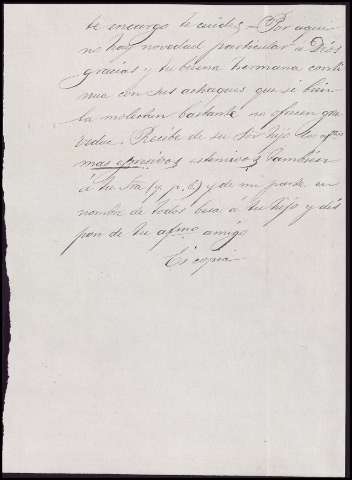 te encargo te cuides – Por aqui
no hay novedad particular a Dios
gracias y tu buena hermana conti
nua con sus achaques que si bien
la molestan bastante no ofrecen gra
vedad. Recibe de su Sor hijo los aftos
mas espresivos estensivos tambien
á tu Sra (q. p. b) y de mi parte en
nombre de todos besa á tu hijo y dis
pon de tu afmo amigo
Es copia